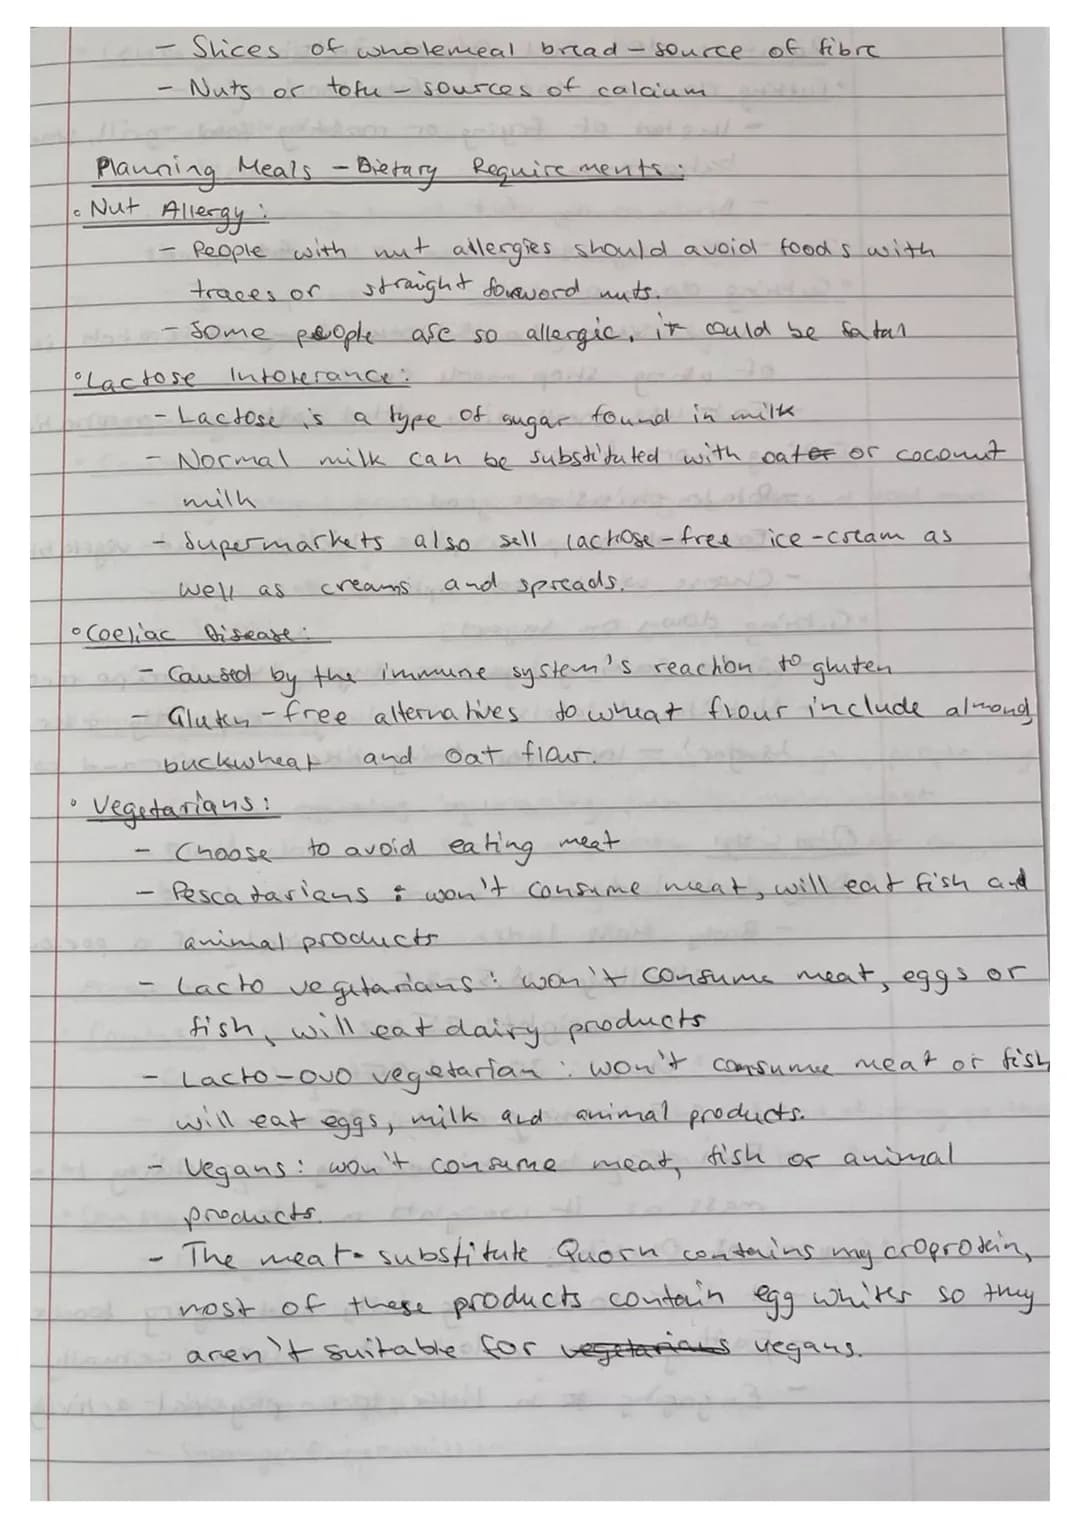 - Slices of wholemeal bread - source of fibre
- Nuts or tofu - sources of calcium
Planning Meals - Dietary Requirements:
• Nut Allergy:
- People with nut allergies should avoid foods with
traces or straight forword nuts.
- Some people are so allergic, it could be fatal
• Lactose Intolerance:
- Lactose is a type of sugar found in milk
- Normal milk can be substituted with oat or coconut
milk
- Supermarkets also sell lactose-free ice-cream as
well as creams and spreads.
• Coeliac Disease:
- Caused by the immune system's reaction to gluten
- Gluten-free alternatives to wheat flour include almond,
buckwheat and oat flour.
• Vegetarians:
- Choose to avoid eating meat
- Pescatarians: won't consume meat, will eat fish and
animal products
- Lacto vegetarians: won't consume meat, eggs or
fish, will eat dairy products
- Lacto-ovo vegetarian: won't consume meat or fish
will eat eggs, milk and animal products.
- Vegans: won't consume meat, fish or animal
products.
- The meat-substitute Quorn contains mycroprotein,
most of these products contain egg whites so they
aren't suitable for vegetarians vegans.